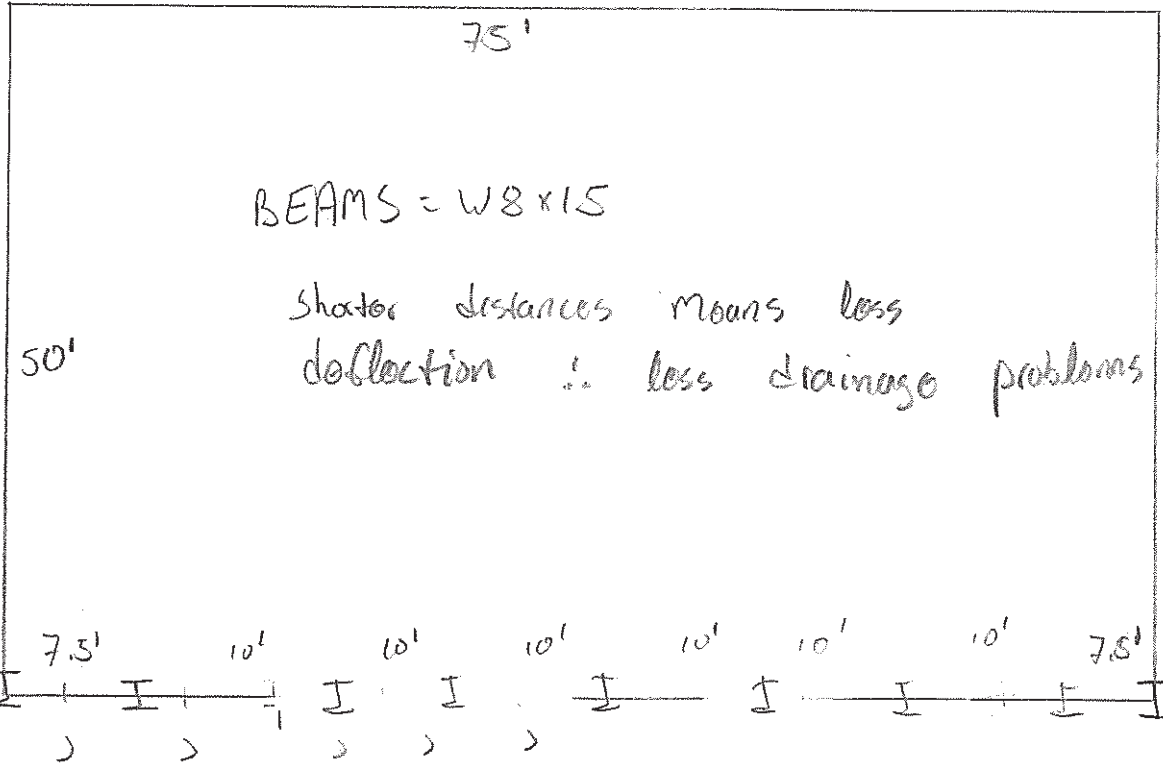 75'
BEAMS = W8x15
Shorter distances means less
50'
deflection ∴ less drainage problems
7.5' 10' 10' 10' 10' 10' 10' 7.5'